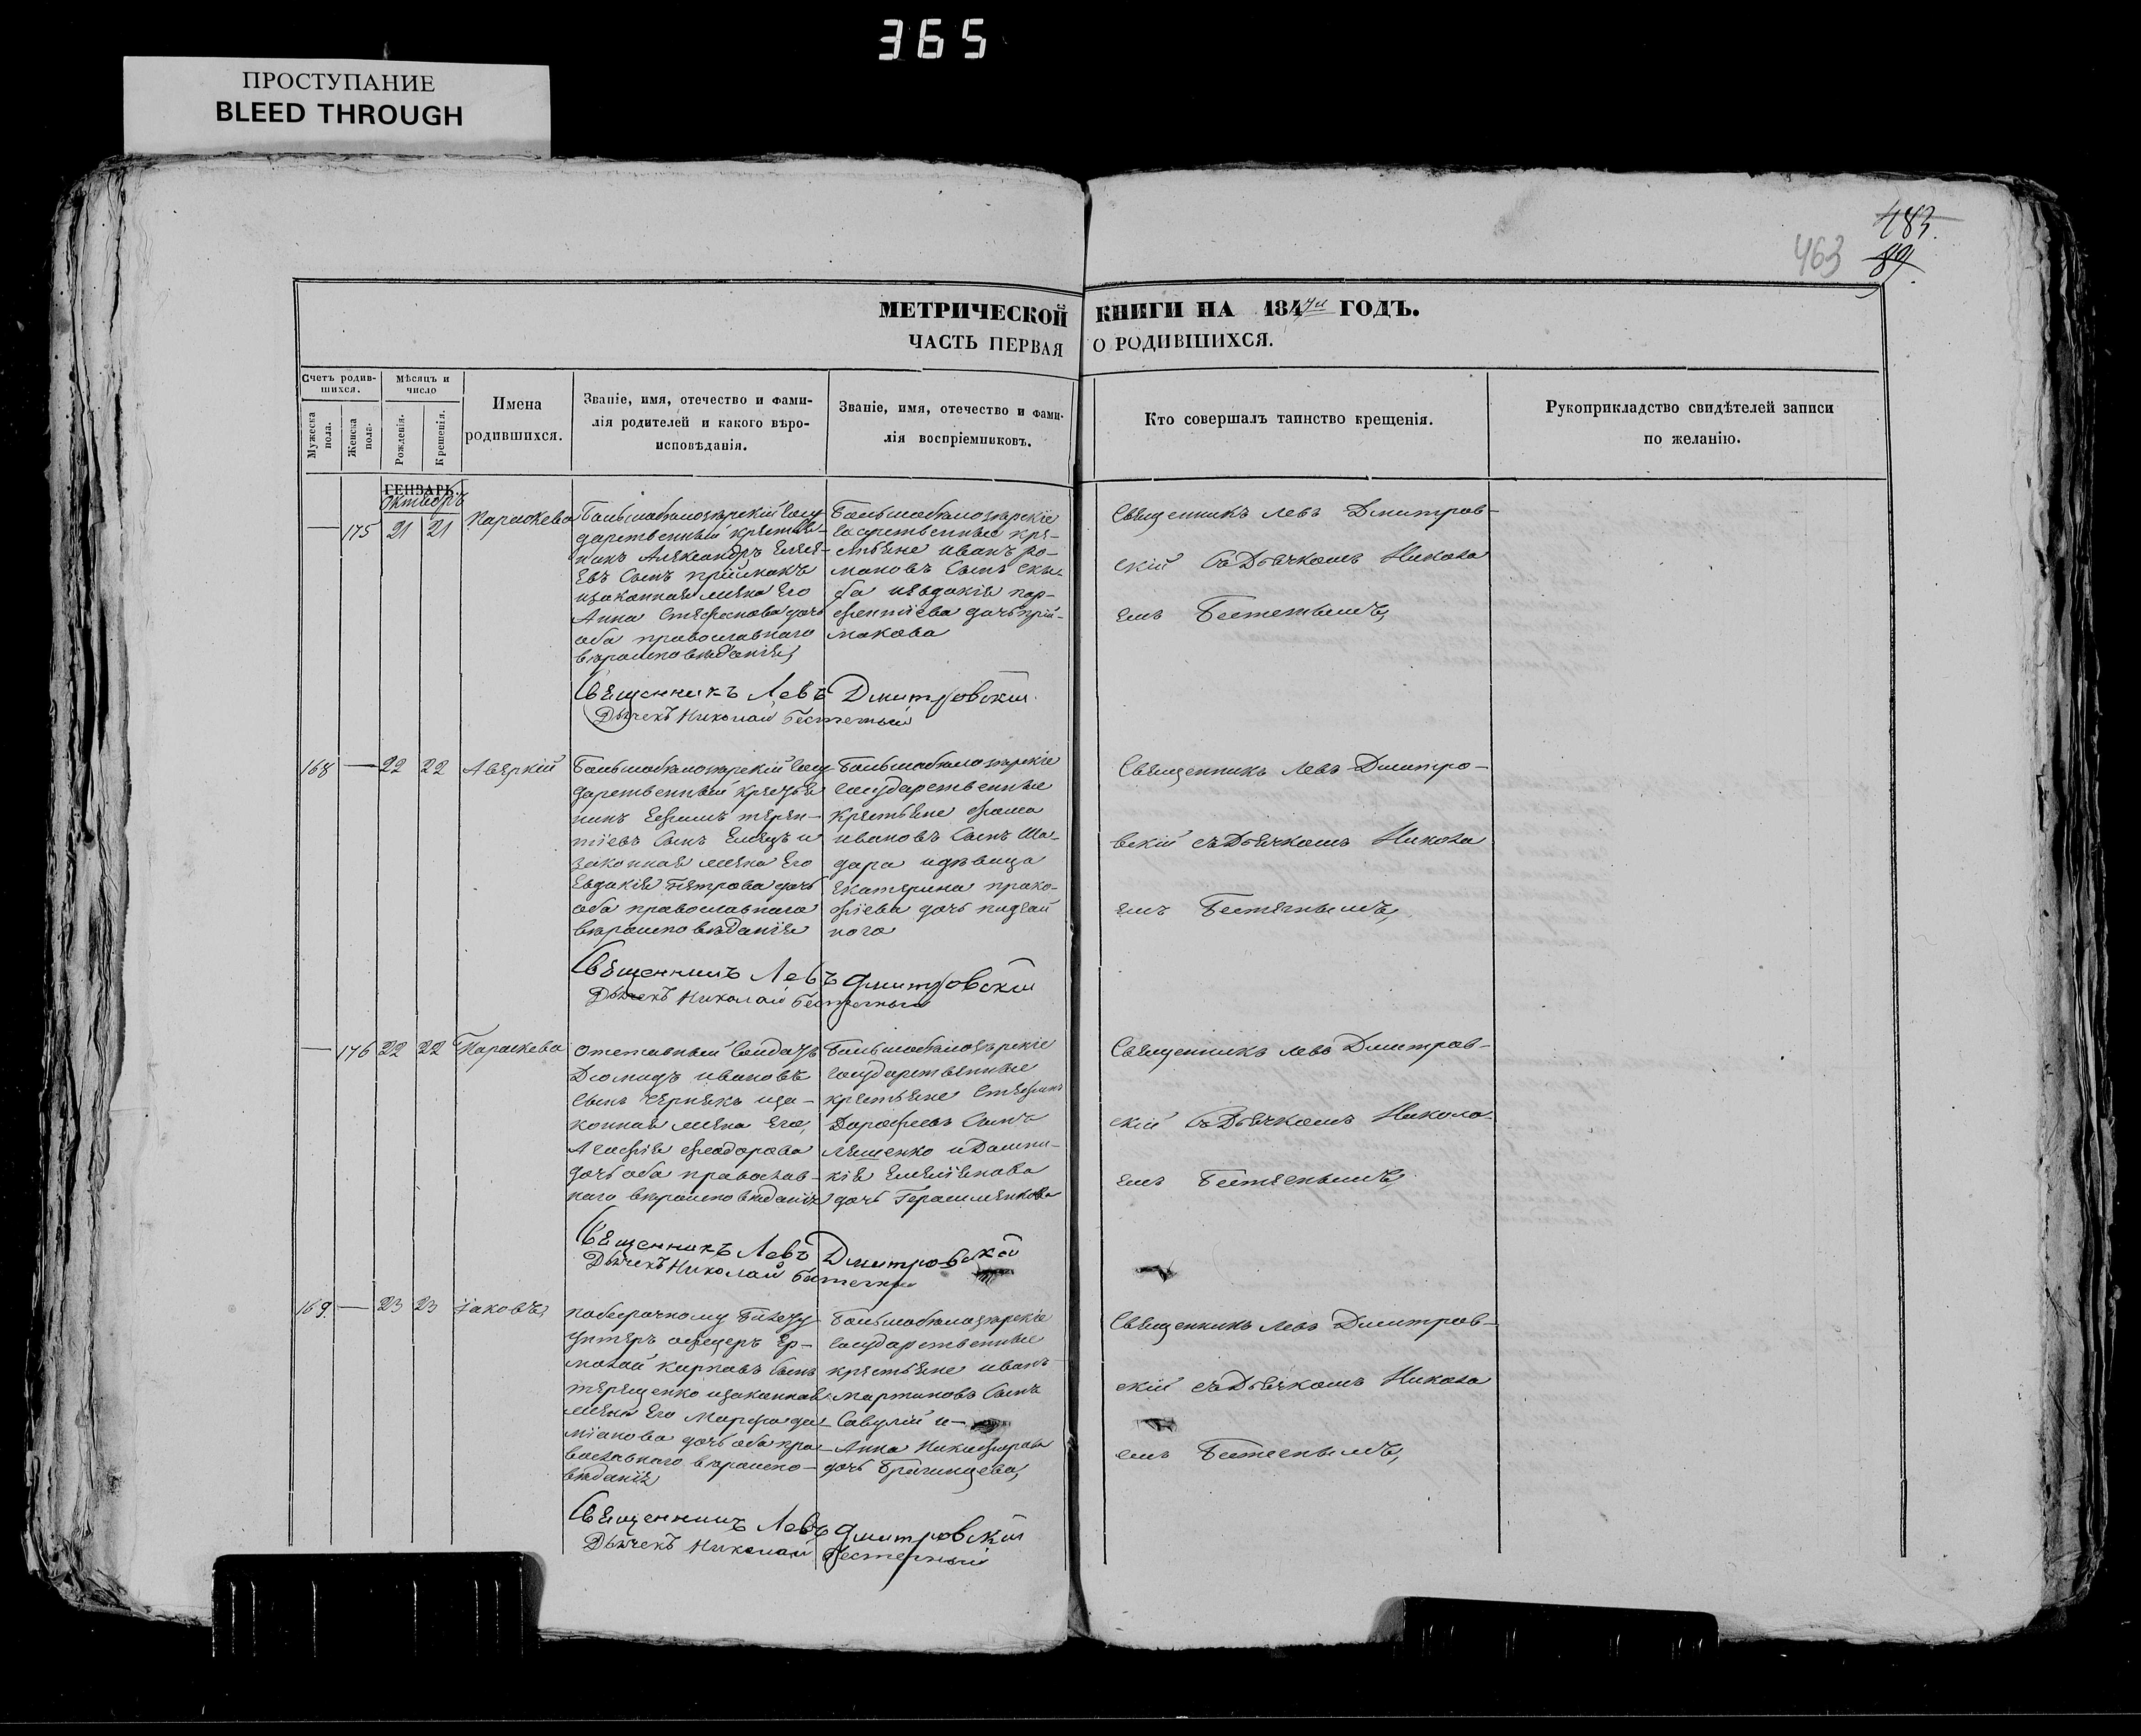 365
ПРОСТУПАНИЕ
BLEED THROUGH
483
463 89
МЕТРИЧЕСКОЙ КНИГИ НА 1847й ГОДЪ.
ЧАСТЬ ПЕРВАЯ О РОДИВШИХСЯ.
Счетъ родив-
шихся.
Мужеска пола.
Женска пола.
Мѣсяцъ и
число
Рожденія.
Крещенія.
Имена
родившихся.
Званіе, имя, отечество и фами-
лія родителей и какого вѣро-
исповѣданія.
Званіе, имя, отечество и фами-
лія воспріемниковъ.
Кто совершалъ таинство крещенія.
Рукоприкладство свидѣтелей записи
по желанію.
ГЕНВАРЬ.
Октябрь
— 175 21 21 Параскева
Большебѣлозѣрскій госу
дарственный крестья-
нинъ Александръ Елисе-
евъ Сынъ Пріймакъ
изаконная жена Его
Анна Стефанова дочь
оба православнаго
вѣроисповѣданія,
Большебѣлозѣрскіе
государственные кре-
стьяне иванъ Ро-
мановъ Сынъ
иевдокія пар-
фентіева дочь прій-
макова
Священникъ левъ Дмитров-
скій СъДьячкомъ Никола
емъ Бестетнымъ,
Священникъ Левъ Дмитровскій
Дьячекъ Николай Бестетный
168 — 22 22 Аверкій
Большебѣлозѣрскій госу
дарственный крестья
нинъ Ефимъ терен-
тіевъ Сынъ Емецъ и
законная жена Его
Евдокія петрова дочь
оба православнаго
вѣроисповѣданія
Большебѣлозѣрскіе
государственные
крестьяне фома
ивановъ Сынъ Ша-
дара идѣвица
Екатерина проко-
фіева дочь
ного
Священникъ левъ Дмитро-
вскій съДьячкомъ Никола
емъ Бестетнымъ,
Священникъ Левъ Дмитровскій
Дьячекъ Николай Бестетный
— 176 22 22 Параскева
Отставный Солдатъ
Діомидъ ивановъ
Сынъ Чернякъ иза-
конная жена Его,
Агафія феодорова
дочь оба православ-
наго вѣроисповѣданія
Большебѣлозѣрскіе
государственные
крестьяне Стефанъ
Дорофеевъ Сынъ
Ляшенко иДомни-
кія Емеліянова
дочь Герасименкова
Священникъ левъ Дмитров-
скій СъДьячкомъ Никола-
емъ Бестетнымъ,
Священникъ Левъ Дмитровскій
Дьячекъ Николай Бестетный
169. — 23 23 іаковъ,
побезсрочному билету
унтеръ офицеръ Ер-
молай карповъ Сынъ
терещенко изаконная
жена Его Марфа да-
міанова дочь оба пра-
вославнаго вѣроиспо-
вѣданія
Большебѣлозѣрскіе
государственные
крестьяне иванъ
мартиновъ Сынъ
Савулій и-
Анна Никифорова
дочь
Священникъ левъ Дмитров-
скій съДьячкомъ Никола
емъ Бестетнымъ,
Священникъ Левъ Дмитровскій
Дьячекъ Николай Бестетный